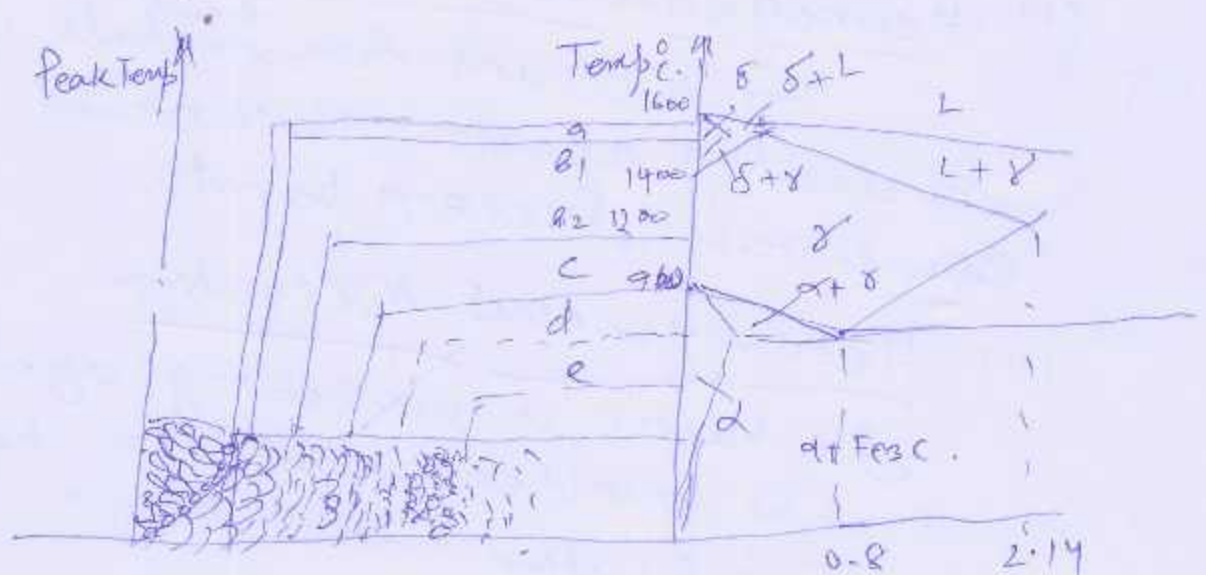 Peak Temp
Temp °C.
1600
δ
δ+L
L
a
b1
1400
δ+γ
L+γ
b2
1200
γ
c
900
α+γ
d
e
α
α+Fe3C.
0.8
2.14